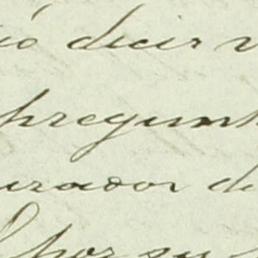 decir
pregun
urador d
por su